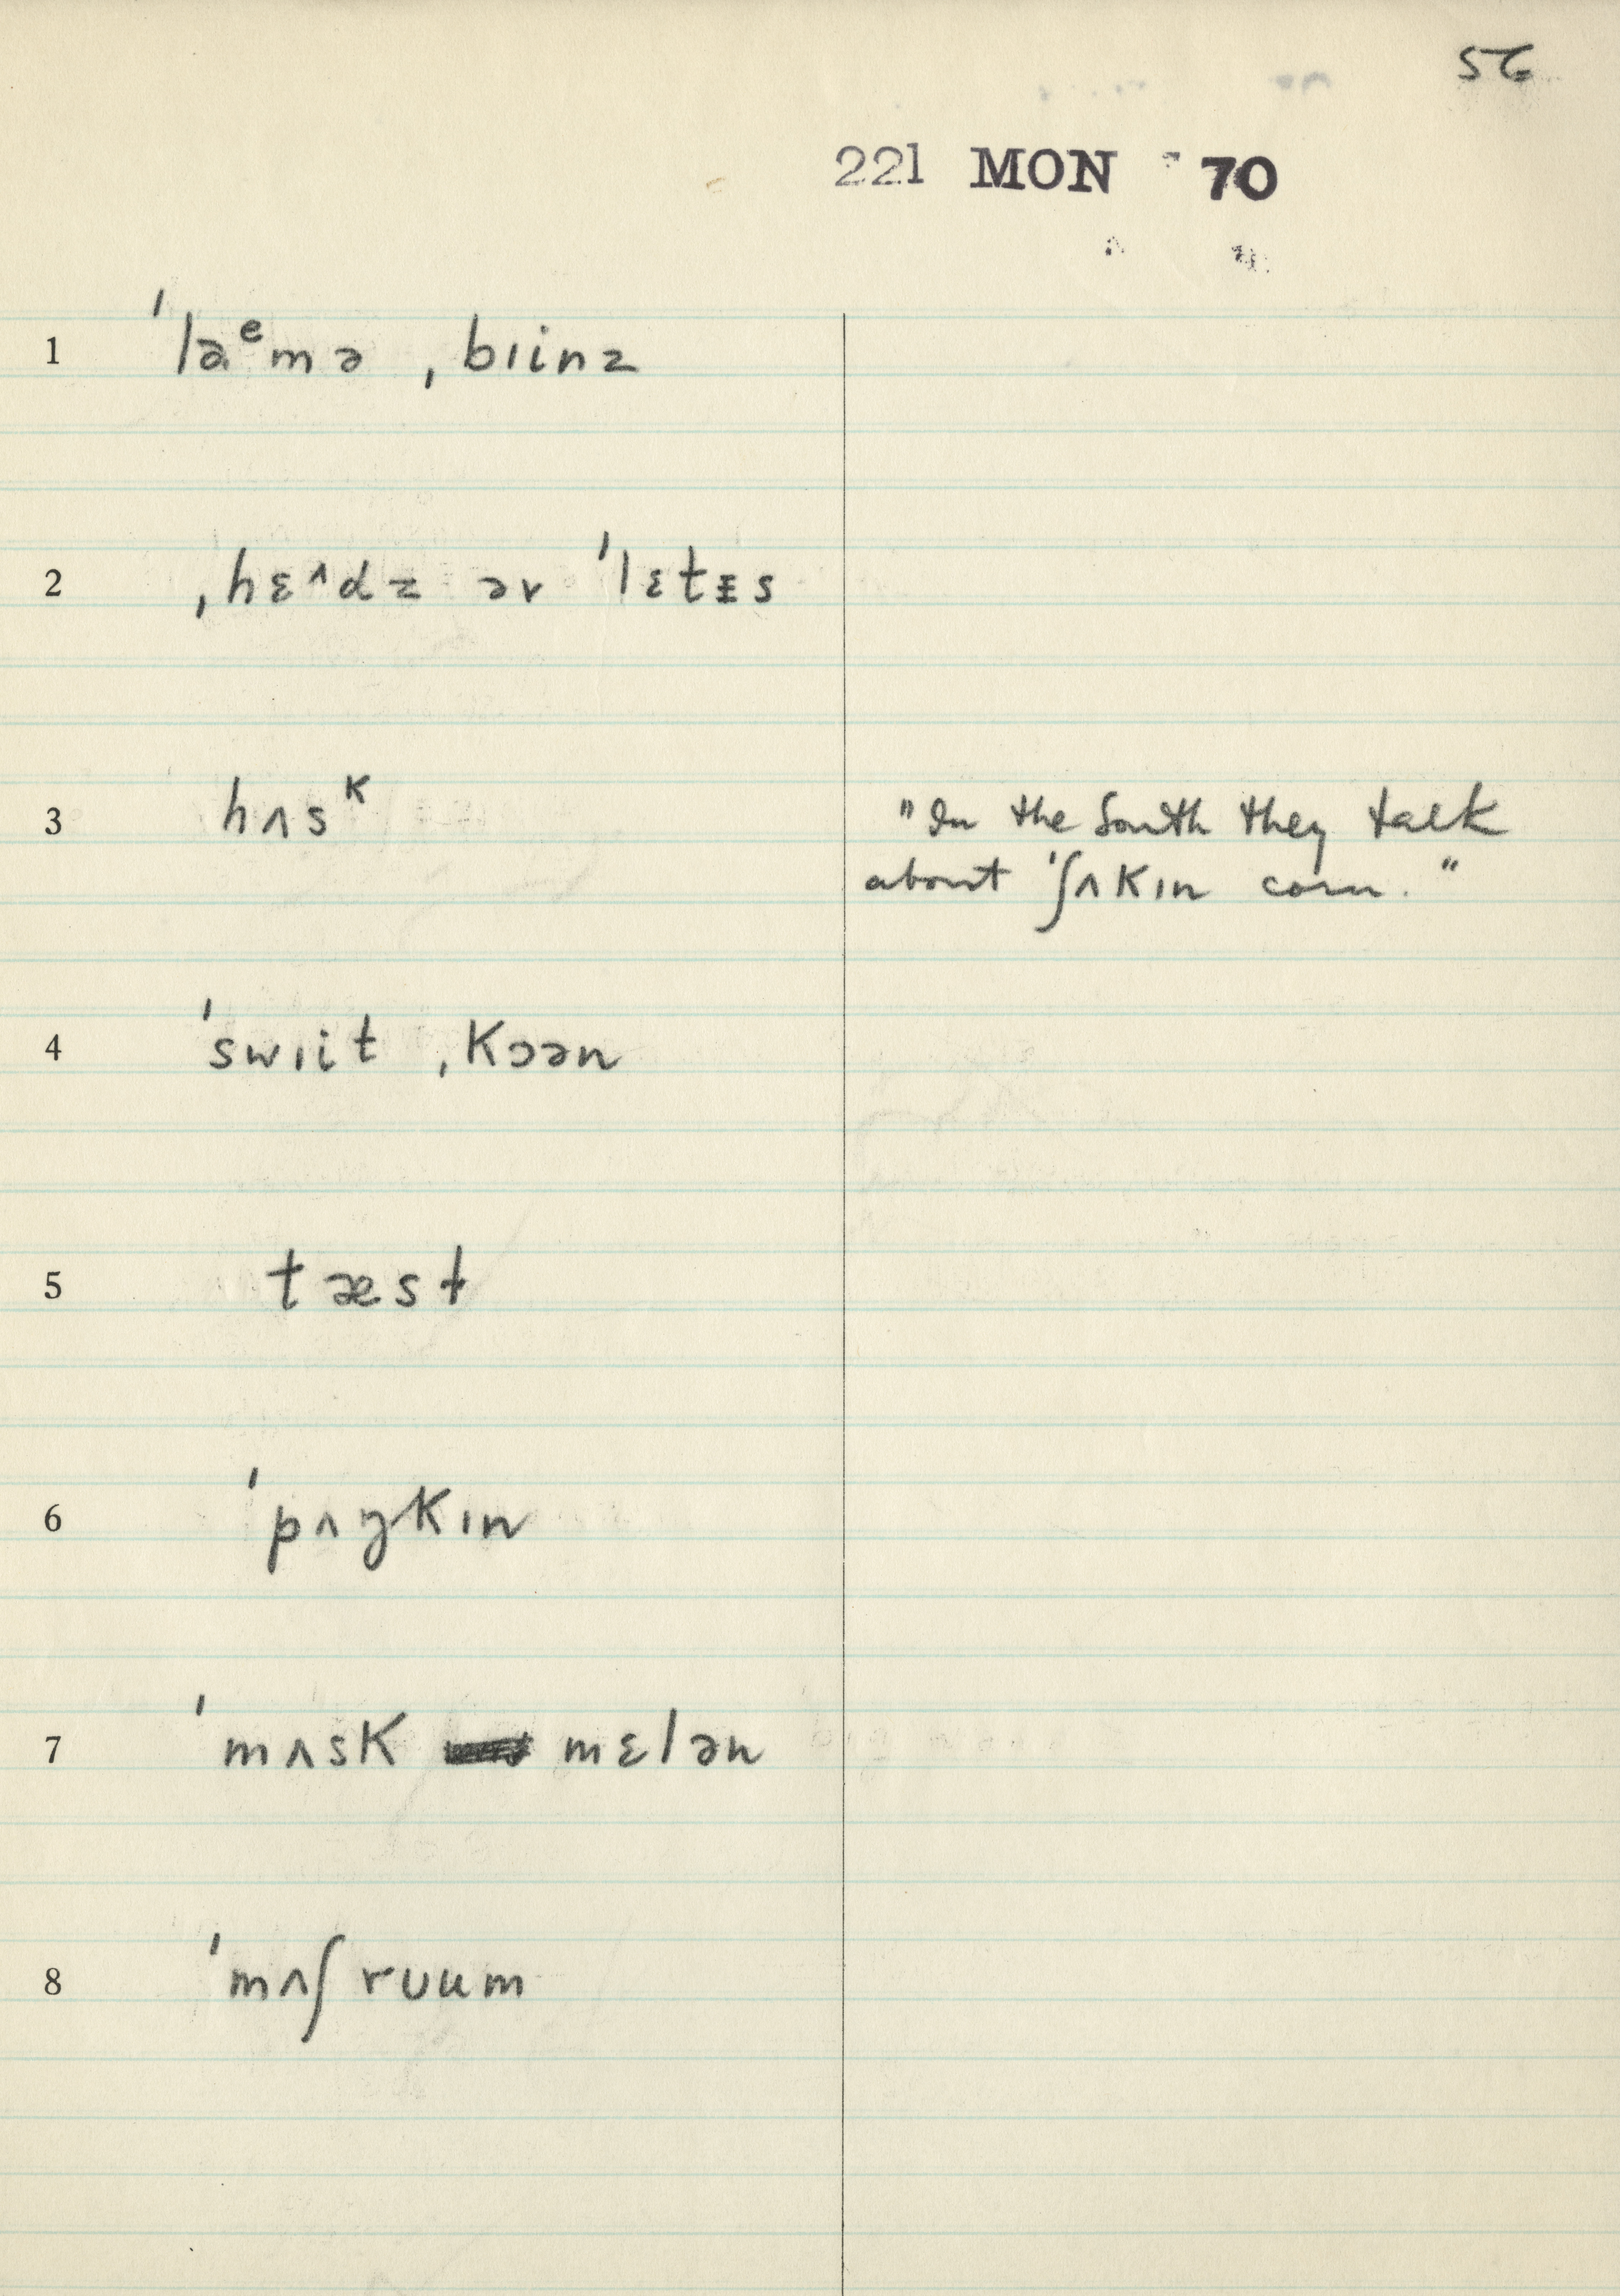 56
221 MON 70
1 ˈlaᵉmə ˌbɪinz
2 ˌhɛʌdz əv ˈlɛtɪs
3 hʌsᴷ "In the South they talk
about ˈʃʌkɪn corn."
4 ˈswɪit ˌkɔən
5 tæst
6 ˈpʌŋkɪn
7 ˈmʌsk mɛlən
8 ˈmʌʃruum